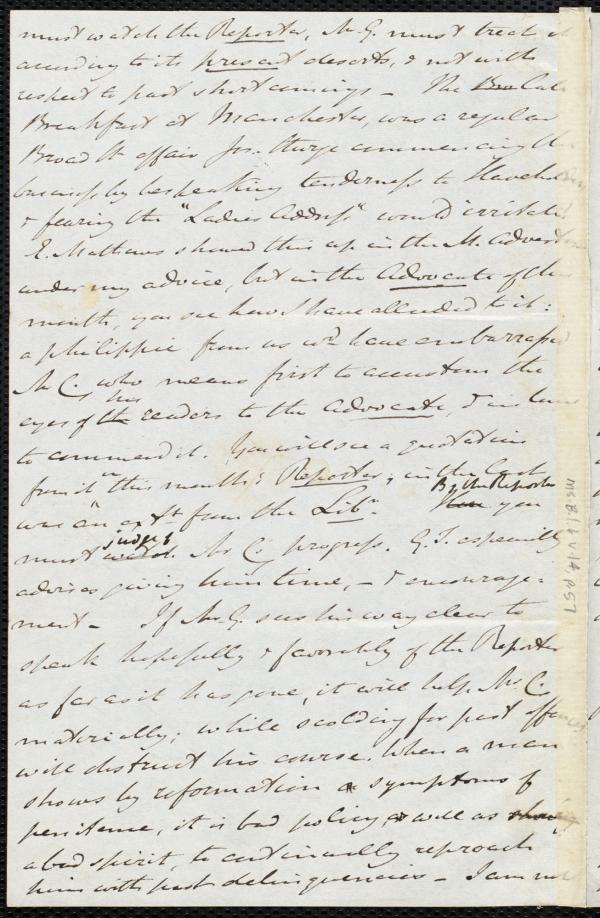 must watch the Reporter, Mr G. must treat it
according to its present deserts, & not with
respect to past short comings – The
Breakfast at Manchester, was a regular
Broad St affair Jos. Sturge commencing the
business by bespeaking tenderness to
& fearing the "Ladies Address" would irritate!
E. Mathews showed this up in the M. Advertiser
under my advice, but in the Advocate of this
month, you see how I have alluded to it:
a philippic from us wd have embarrassed
Mr C. who means first to accustom the
eyes of his readers to the Advocate, & in time
to commend it. You will see a quotation
from it in this month's Reporter; in the last
was an extt from the Libr. By the Reporter you
must judge Mr C's progress. G.T. especially
advises giving him time, – & encourage-
ment – If Mr G. sees his way clear to
speak hopefully & favorably of the Reporter
as far as it has gone, it will help Mr C.
materially; while scolding for past offences
will obstruct his course. When a man
shows by reformation symptoms of
penitence, it is bad policy, as well as
a bad spirit, to continually reproach
him with past delinquencies – I am not
Ms.B.1.6 v.14, p.57